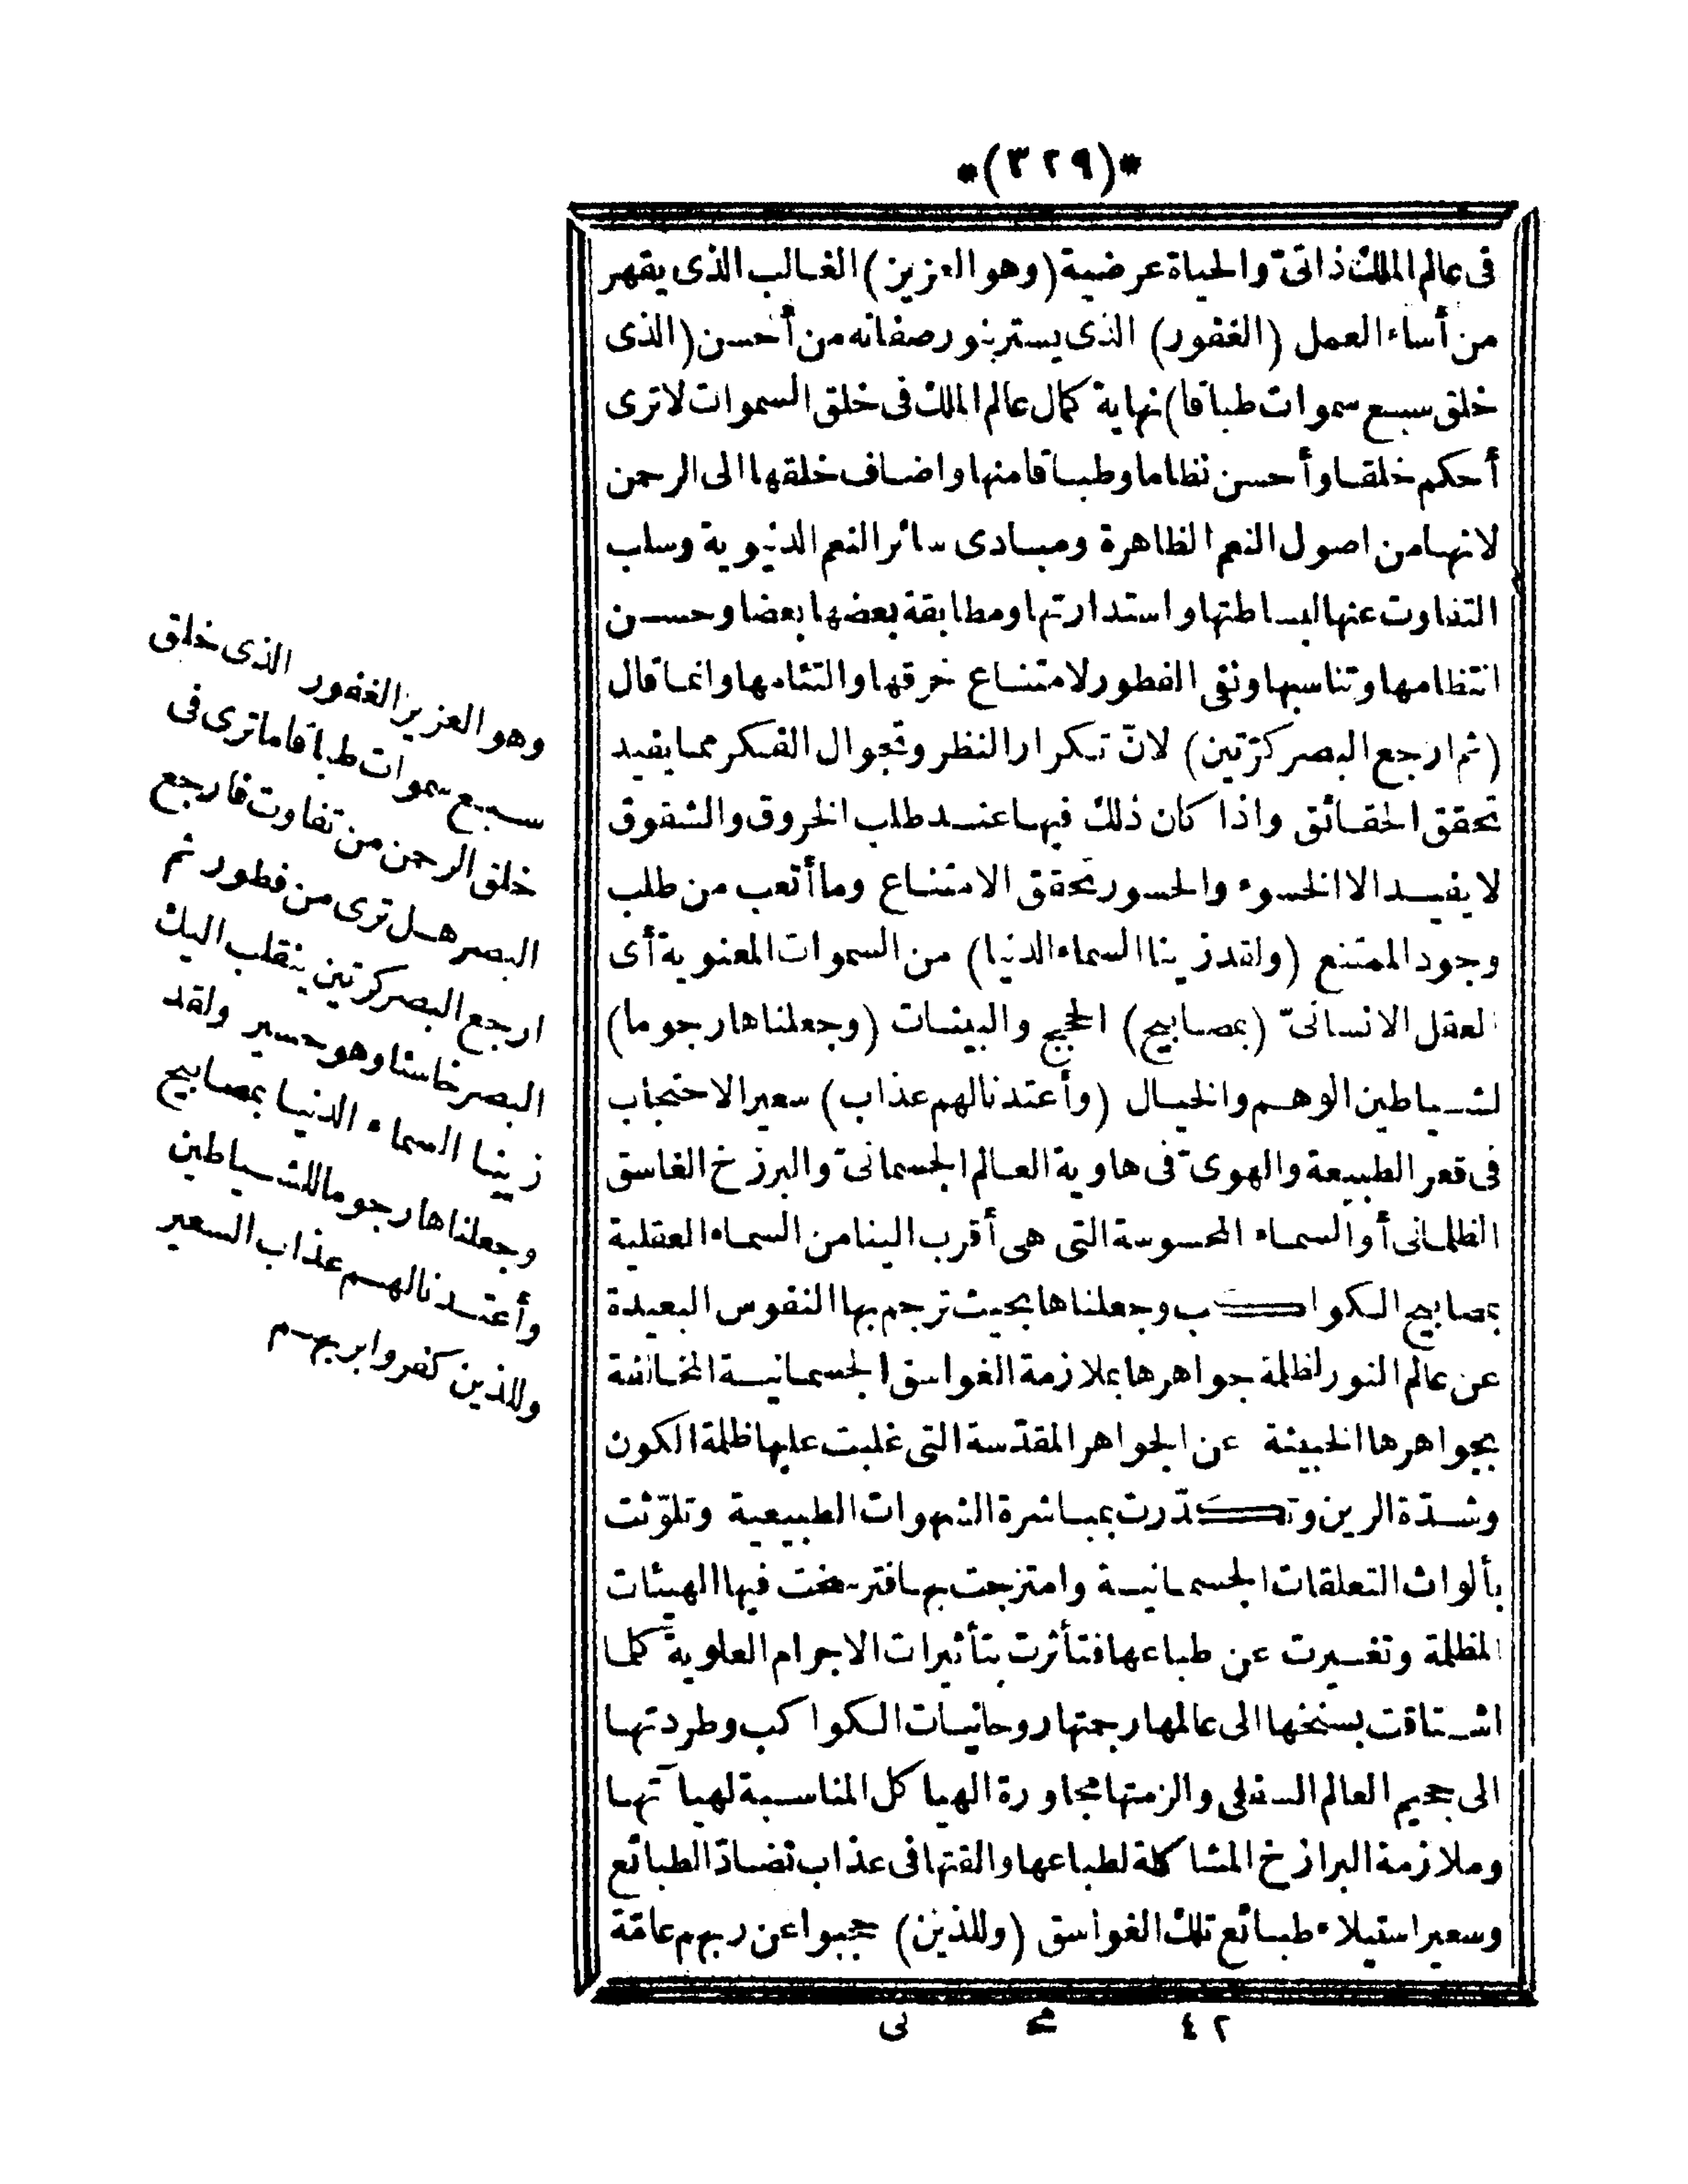 *(٣٢٩)*
فى عالم الملك ذاتىّ والحياة عرضية (وهو العزيز) الغالب الذى يقهر
من أساء العمل (الغفور) الذى يستر بنور صفاته من أحسن (الذى
خلق سبع سموات طباقا) نهاية كمال عالم الملك فى خلق السموات لا ترى
أحكم خلقا وأحسن نظاما وطباقا منها واضاف خلقها الى الرحمن
لانها من اصول النعم الظاهرة ومبادى سائر النعم الدنيوية وسلب
التفاوت عنها لبساطتها واستدارتها ومطابقة بعضها بعضا وحسن
انتظامها وتناسبها ونفى الفطور لامتناع خرقها والتئامها وانما قال
(ثم ارجع البصر كرّتين) لانّ تكرار النظر وتجوال الفكر مما يفيد
تحقق الحقائق واذا كان ذلك فيها عند طلب الخروق والشقوق
لا يفيد الا الخسوء والحسور تحقق الامتناع وما أتعب من طلب
وجود الممتنع (ولقد زينا السماء الدنيا) من السموات المعنوية أى
العقل الانسانىّ (بمصابيح) الحجج والبينات (وجعلناها رجوما)
لشياطين الوهم والخيال (وأعتدنا لهم عذاب) سعير الاحتجاب
فى قعر الطبيعة والهوىّ فى هاوية العالم الجسمانىّ والبرزخ الغاسق
الظلمانى أو السماء المحسوسة التى هى أقرب الينا من السماء العقلية
بمصابيح الكواكب وجعلناها بحيث ترجم بها النفوس البعيدة
عن عالم النور لظلمة جواهرها بملازمة الغواسق الجسمانية المخالفة
بجواهرها الخبيثة عن الجواهر المقدّسة التى غلبت عليها ظلمة الكون
وشدّة الرين وتكدّرت بمباشرة الشهوات الطبيعية وتلوّثت
بألواث التعلقات الجسمانية وامتزجت بها فترسخت فيها الهيئات
المظلمة وتغيرت عن طباعها فتأثرت بتأثيرات الاجرام العلوية كلما
اشتاقت بسنخها الى عالمها رجمتها روحانيات الكواكب وطردتها
الى جحيم العالم السفلى والزمتها مجاورة الهياكل المناسبة لهيآتها
وملازمة البرازخ المشاكلة لطباعها والقتها فى عذاب تضادّ الطبائع
وسعير استيلاء طبائع تلك الغواسق (وللذين) حجبوا عن ربهم عامّة
وهو العزيز الغفور الذى خلق
سبع سموات طباقا ماترى فى
خلق الرحمن من تفاوت فارجع
البصر هل ترى من فطور ثم
ارجع البصر كرتين ينقلب اليك
البصر خاسئا وهو حسير ولقد
زينا السماء الدنيا بمصابيح
وجعلناها رجوما للشياطين
وأعتدنا لهم عذاب السعير
وللذين كفروا بربهم
٤٢ مح نى